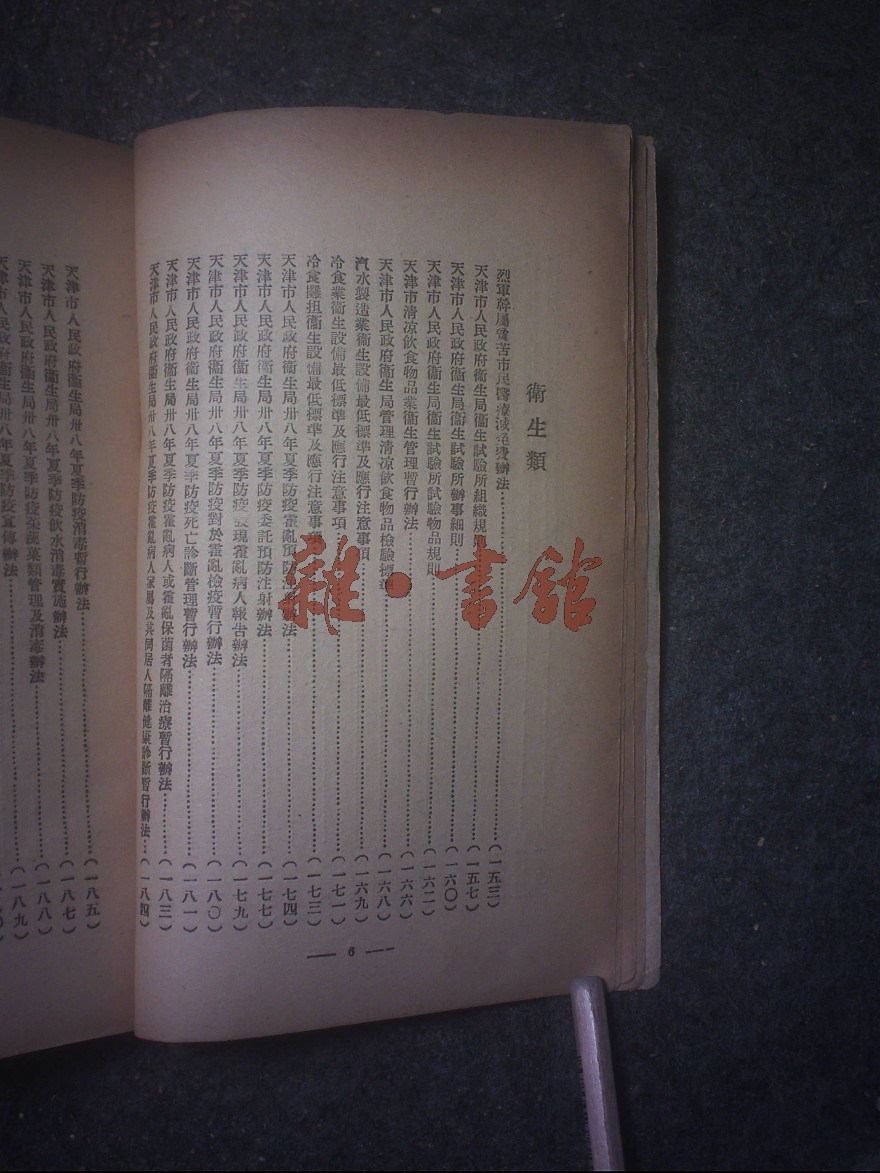 衞生類
烈軍幹屬貧苦市民醫療減免費辦法……(一五三)
天津市人民政府衞生局衞生試驗所組織規則……(一五七)
天津市人民政府衞生局衞生試驗所辦事細則……(一六〇)
天津市人民政府衞生局衞生試驗所試驗物品規則……(一六二)
天津市清凉飲食物品業衞生管理暫行辦法……(一六六)
天津市人民政府衞生局管理清凉飲食物品檢驗標準……(一六八)
汽水製造業衞生設備最低標準及應行注意事項……(一六九)
冷食業衞生設備最低標準及應行注意事項……(一七一)
冷食攤担衞生設備最低標準及應行注意事項……(一七三)
天津市人民政府衞生局卅八年夏季防疫霍亂預防注射辦法……(一七四)
天津市人民政府衞生局卅八年夏季防疫委託預防注射辦法……(一七七)
天津市人民政府衞生局卅八年夏季防疫發現霍亂病人報告辦法……(一七九)
天津市人民政府衞生局卅八年夏季防疫對於霍亂檢疫暫行辦法……(一八〇)
天津市人民政府衞生局卅八年夏季防疫死亡診斷管理暫行辦法……(一八一)
天津市人民政府衞生局卅八年夏季防疫霍亂病人或霍亂保菌者隔離治療暫行辦法……(一八三)
天津市人民政府衞生局卅八年夏季防疫霍亂病人家屬及其同居人隔離健康診斷暫行辦法…(一八四)
— 6 —
天津市人民政府衞生局卅八年夏季防疫消毒暫行辦法……(一八五)
天津市人民政府衞生局卅八年夏季防疫飲水消毒實施辦法……(一八七)
天津市人民政府衞生局卅八年夏季防疫菜蔬菓類管理及消毒辦法……(一八八)
天津市人民政府衞生局卅八年夏季防疫宣傳辦法……(一八九)
雜·書舘